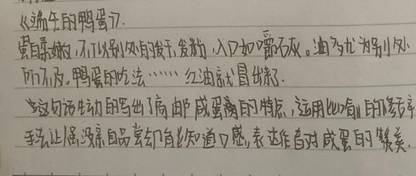 《端午的鸭蛋》.
质细而油多,不似别处的发干、发粉,入口如嚼石灰。油多尤为别处
所不及。鸭蛋的吃法……红油就冒出来了.
这句话生动的写出了高邮咸蛋的特点,运用比喻的修辞
手法让人没亲自品尝却能知道口感,表达作者对咸蛋的赞美.